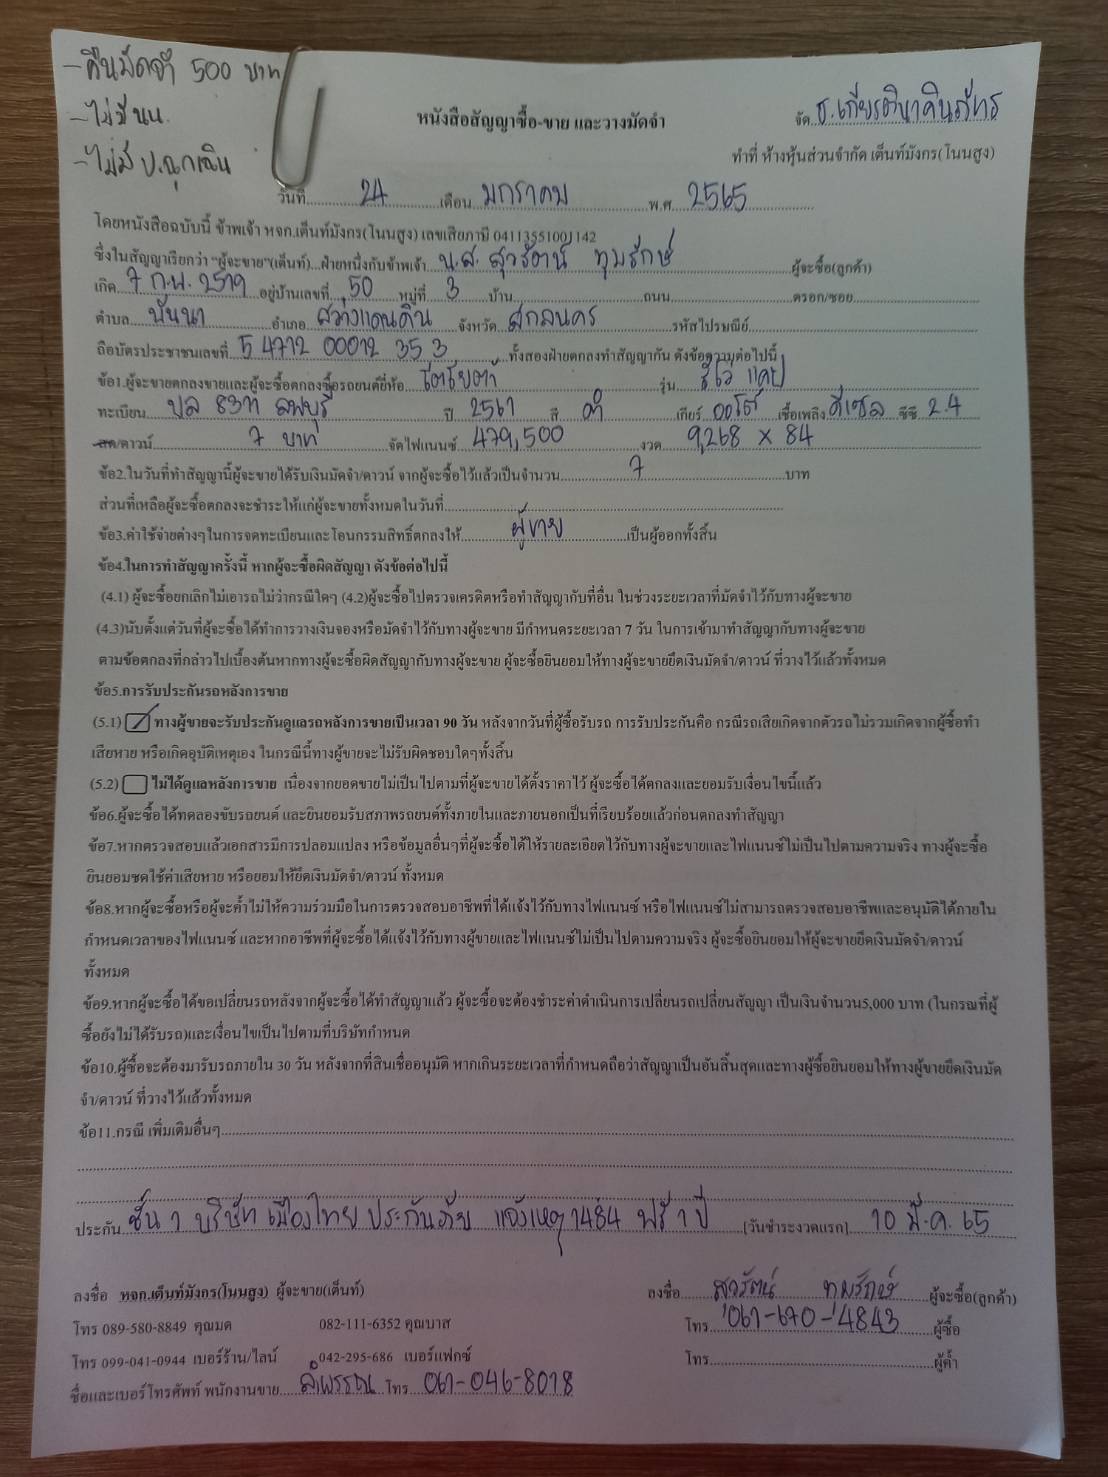 -คืนมัดจำ 500 บาท
-ไม่มี นน.
-ไม่มี ป.ฉุกเฉิน
หนังสือสัญญาซื้อ-ขาย และวางมัดจำ
จัด ธ.เกียรตินาคินภัทร
ทำที่ ห้างหุ้นส่วนจำกัด เต็นท์มังกร(โนนสูง)
วันที่ 24 เดือน มกราคม พ.ศ. 2565
โดยหนังสือฉบับนี้ ข้าพเจ้า หจก.เต็นท์มังกร(โนนสูง) เลขเสียภาษี 04113551001142
ซึ่งในสัญญาเรียกว่า "ผู้จะขาย"(เต็นท์)...ฝ่ายหนึ่งกับข้าพเจ้า น.ส. สุวรัตน์ ทุมรักษ์ ผู้จะซื้อ(ลูกค้า)
เกิด 7 ก.พ. 2519 อยู่บ้านเลขที่ 50 หมู่ที่ 3 บ้าน ถนน ตรอก/ซอย
ตำบล บ้าน อำเภอ สว่างแดนดิน จังหวัด สกลนคร รหัสไปรษณีย์
ถือบัตรประชาชนเลขที่ 5 4712 00012 35 3 ทั้งสองฝ่ายตกลงทำสัญญากัน ดังข้อความต่อไปนี้
ข้อ1.ผู้จะขายตกลงขายและผู้จะซื้อตกลงซื้อรถยนต์ยี่ห้อ โตโยต้า รุ่น รีโว่ แคป
ทะเบียน ลพบุรี ปี 2561 สี ดำ เกียร์ ออโต้ เชื้อเพลิง ดีเซล ซีซี 2.4
สด/ดาวน์ 1 บาท จัดไฟแนนซ์ 479,500 งวด 9,268 x 84
ข้อ2.ในวันที่ทำสัญญานี้ผู้จะขายได้รับเงินมัดจำ/ดาวน์ จากผู้จะซื้อไว้แล้วเป็นจำนวน 1 บาท
ส่วนที่เหลือผู้จะซื้อตกลงจะชำระให้แก่ผู้จะขายทั้งหมดในวันที่
ข้อ3.ค่าใช้จ่ายต่างๆในการจดทะเบียนและโอนกรรมสิทธิ์ตกลงให้ ผู้ขาย เป็นผู้ออกทั้งสิ้น
ข้อ4.ในการทำสัญญาครั้งนี้ หากผู้จะซื้อผิดสัญญา ดังข้อต่อไปนี้
(4.1) ผู้จะซื้อยกเลิกไม่เอารถไม่ว่ากรณีใดๆ (4.2)ผู้จะซื้อไปตรวจเครดิตหรือทำสัญญากับที่อื่น ในช่วงระยะเวลาที่มัดจำไว้กับทางผู้จะขาย
(4.3)นับตั้งแต่วันที่ผู้จะซื้อได้ทำการวางเงินจองหรือมัดจำไว้กับทางผู้จะขาย มีกำหนดระยะเวลา 7 วัน ในการเข้ามาทำสัญญากับทางผู้จะขาย
ตามข้อตกลงที่กล่าวไปเบื้องต้นหากทางผู้จะซื้อผิดสัญญากับทางผู้จะขาย ผู้จะซื้อยินยอมให้ทางผู้จะขายยึดเงินมัดจำ/ดาวน์ ที่วางไว้แล้วทั้งหมด
ข้อ5.การรับประกันรถหลังการขาย
(5.1) ทางผู้ขายจะรับประกันดูแลรถหลังการขายเป็นเวลา 90 วัน หลังจากวันที่ผู้ซื้อรับรถ การรับประกันคือ กรณีรถเสียเกิดจากตัวรถไม่รวมเกิดจากผู้ซื้อทำ
เสียหาย หรือเกิดอุบัติเหตุเอง ในกรณีนี้ทางผู้ขายจะไม่รับผิดชอบใดๆทั้งสิ้น
(5.2) ไม่ได้ดูแลหลังการขาย เนื่องจากยอดขายไม่เป็นไปตามที่ผู้จะขายได้ตั้งราคาไว้ ผู้จะซื้อได้ตกลงและยอมรับเงื่อนไขนี้แล้ว
ข้อ6.ผู้จะซื้อได้ทดลองขับรถยนต์ และยินยอมรับสภาพรถยนต์ทั้งภายในและภายนอกเป็นที่เรียบร้อยแล้วก่อนตกลงทำสัญญา
ข้อ7.หากตรวจสอบแล้วเอกสารมีการปลอมแปลง หรือข้อมูลอื่นๆที่ผู้จะซื้อได้ให้รายละเอียดไว้กับทางผู้จะขายและไฟแนนซ์ไม่เป็นไปตามความจริง ทางผู้จะซื้อ
ยินยอมชดใช้ค่าเสียหาย หรือยอมให้ยึดเงินมัดจำ/ดาวน์ ทั้งหมด
ข้อ8.หากผู้จะซื้อหรือผู้จะค้ำไม่ให้ความร่วมมือในการตรวจสอบอาชีพที่ได้แจ้งไว้กับทางไฟแนนซ์ หรือไฟแนนซ์ไม่สามารถตรวจสอบอาชีพและอนุมัติได้ภายใน
กำหนดเวลาของไฟแนนซ์ และหากอาชีพที่ผู้จะซื้อได้แจ้งไว้กับทางผู้ขายและไฟแนนซ์ไม่เป็นไปตามความจริง ผู้จะซื้อยินยอมให้ผู้จะขายยึดเงินมัดจำ/ดาวน์
ทั้งหมด
ข้อ9.หากผู้จะซื้อได้ขอเปลี่ยนรถหลังจากผู้จะซื้อได้ทำสัญญาแล้ว ผู้จะซื้อจะต้องชำระค่าดำเนินการเปลี่ยนรถเปลี่ยนสัญญา เป็นเงินจำนวน5,000 บาท (ในกรณที่ผู้
ซื้อยังไม่ได้รับรถ)และเงื่อนไขเป็นไปตามที่บริษัทกำหนด
ข้อ10.ผู้ซื้อจะต้องมารับรถภายใน 30 วัน หลังจากที่สินเชื่ออนุมัติ หากเกินระยะเวลาที่กำหนดถือว่าสัญญาเป็นอันสิ้นสุดและทางผู้ซื้อยินยอมให้ทางผู้ขายยึดเงินมัด
จำ/ดาวน์ ที่วางไว้แล้วทั้งหมด
ข้อ11.กรณี เพิ่มเติมอื่นๆ
ประกัน ชั้น 1 บริษัท เมืองไทย ประกันภัย แจ้งเหตุ 1484 ฟรี 1 ปี (วันชำระงวดแรก) 10 มี.ค. 65
ลงชื่อ หจก.เต็นท์มังกร(โนนสูง) ผู้จะขาย(เต็นท์)
ลงชื่อ สุวรัตน์ ทุมรักษ์ ผู้จะซื้อ(ลูกค้า)
โทร 089-580-8849 คุณมด 082-111-6352 คุณบาส
โทร. 061-670-4843 ผู้ซื้อ
โทร 099-041-0944 เบอร์ร้าน/ไลน์ 042-295-686 เบอร์แฟกซ์
โทร. ผู้ค้ำ
ชื่อและเบอร์โทรศัพท์ พนักงานขาย ลำพรรณ โทร 061-046-8018